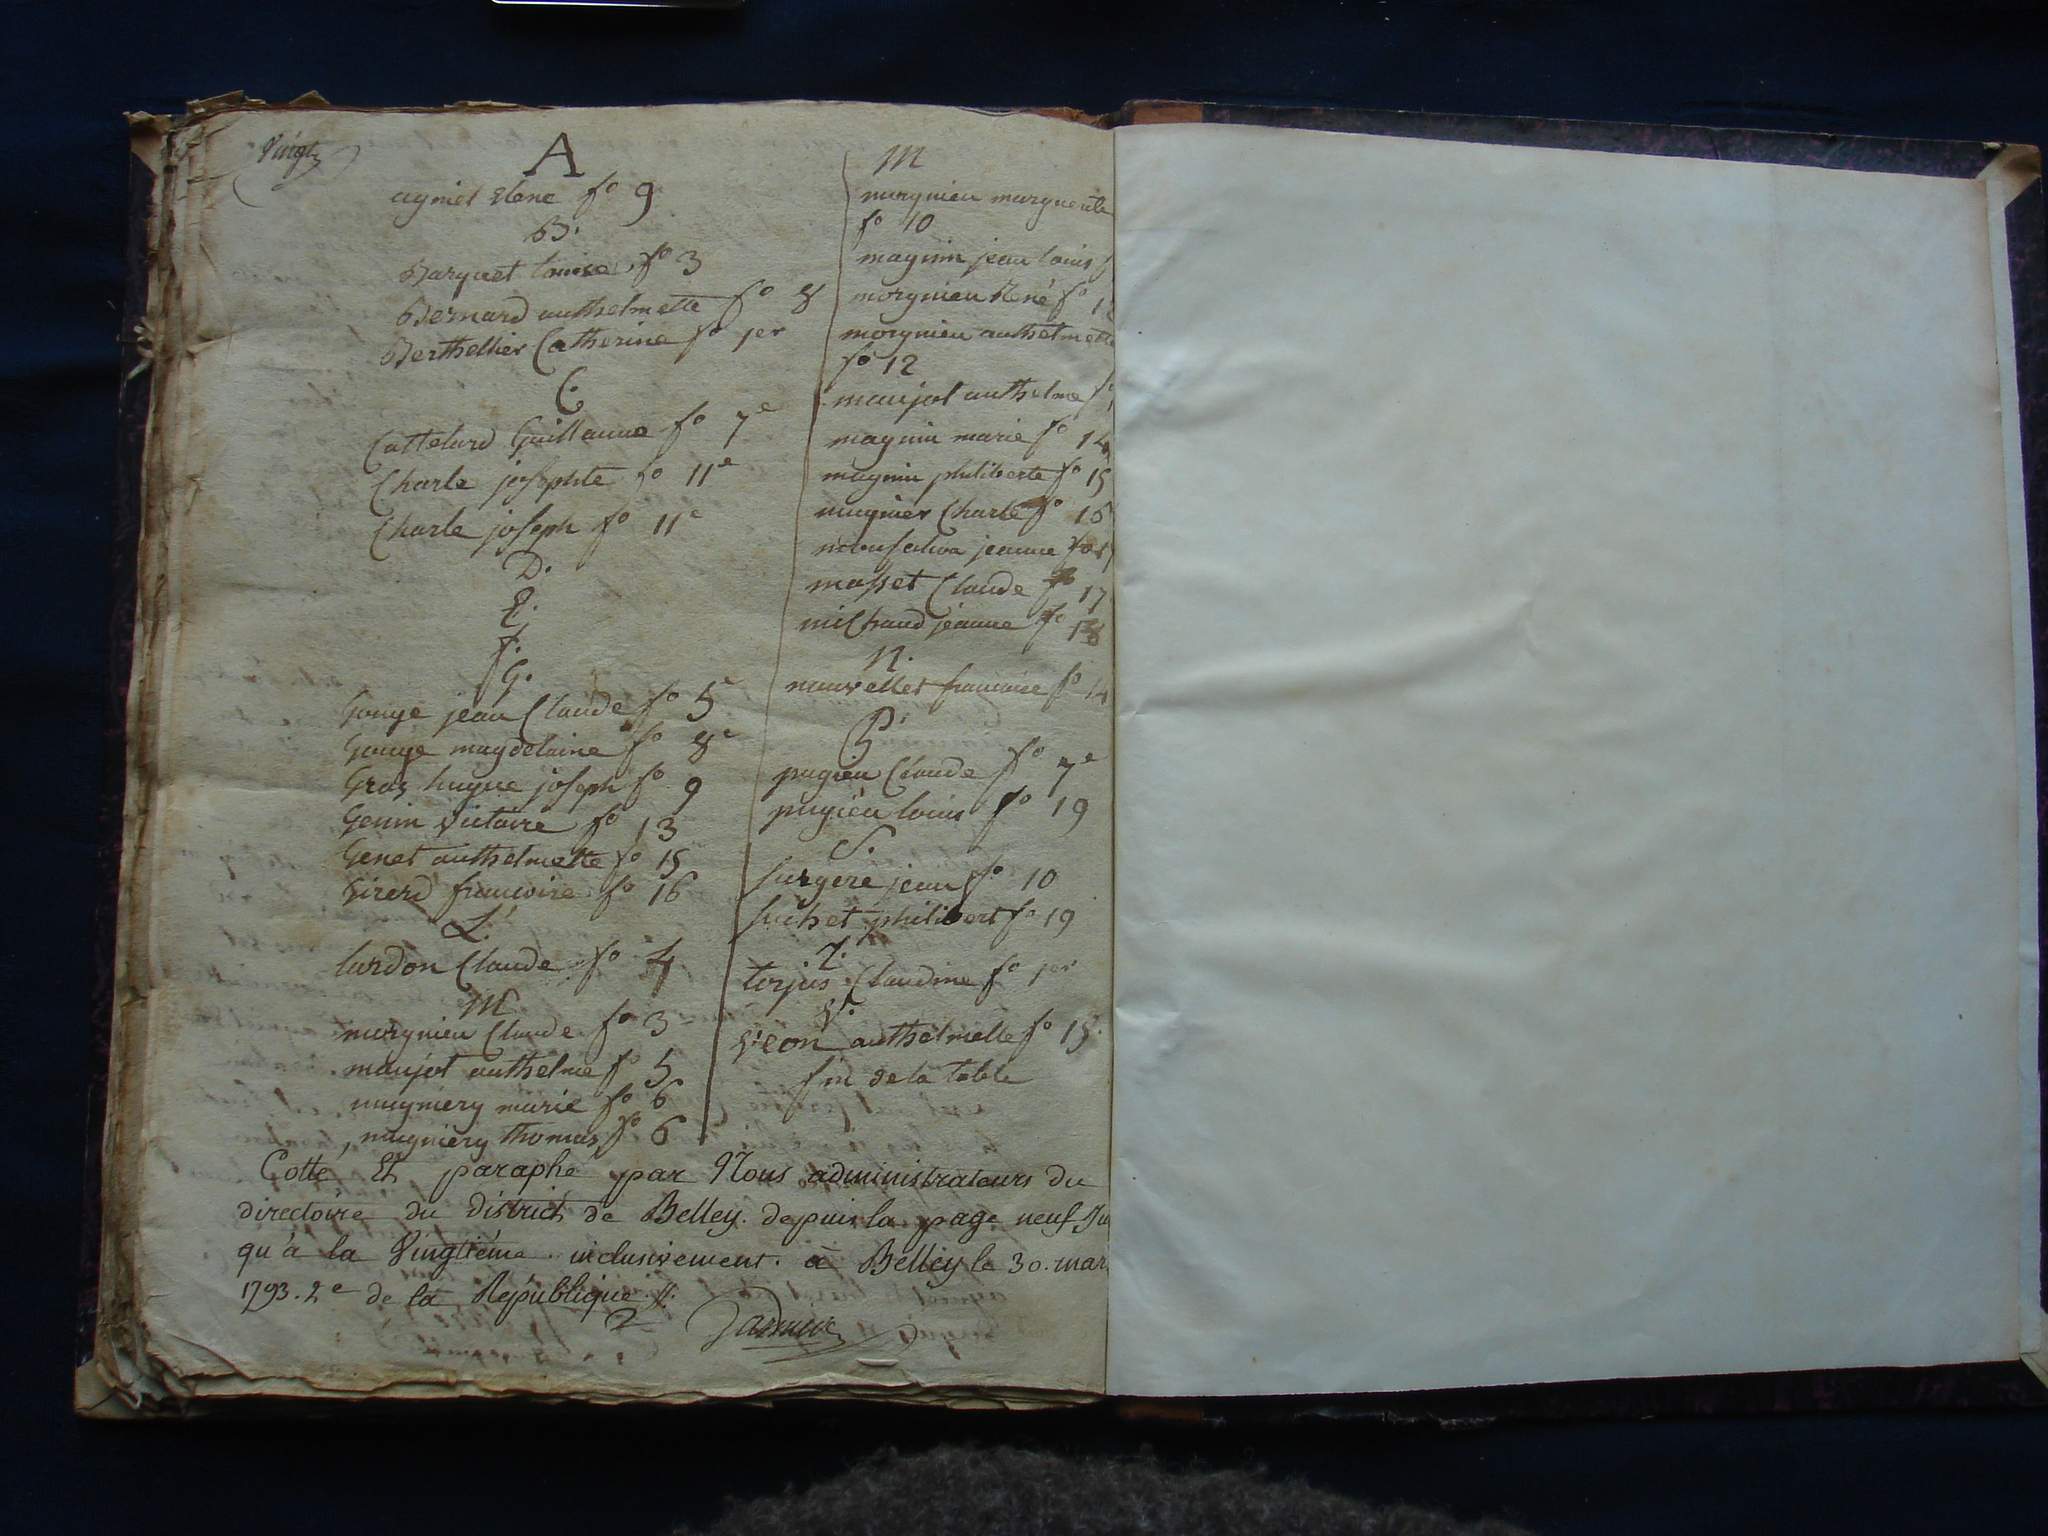 Vingt
A
agniel Rene fo 9
B.
Barquet louise fo 3
Bernard anthelmette fo 8
Berthellier Catherine fo 1er
C.
Cattelard Guillaume fo 7e
Charle josephte fo 11e
Charle joseph fo 11e
D.
E.
f.
G.
Gouge jean Claude fo 5e
Gouge magdelaine fo 8e
Gras hugue joseph fo 9
Genin victoire fo 13
Genet anthelmette fo 15
Girerd francoise fo 16
L.
lardon Claude fo 4
M
morgnieu Claude fo 3
maujot anthelme fo 5
magniery marie fo 6
magniery thomas fo 6
M
morgnieu marguerite
fo 10
magnin jean louis
morgnieu René fo 12
morgnieu anthelmette
fo 12
maujot anthelme fo
magnin marie fo 14
magnin philiberte fo 15
magnier Charle fo 16
jeanne fo 17
masset Claude fo 17
michaud jeanne fo 18
N.
francoise fo 14
P.
pugieu Claude fo 7e
pugieu louis fo 19
S.
surgere jean fo 10
suchet philibert fo 19
T.
torjus Claudine fo 1er
V.
Veon anthelmette fo 15.
fin de la table
Cotté Et paraphé par Nous administrateurs du
directoire du district de Belley. depuis la page neuf Jus
qu'à la Vingtiéme inclusivement. à Belley le 30. mar
1793. 2e de la République //.